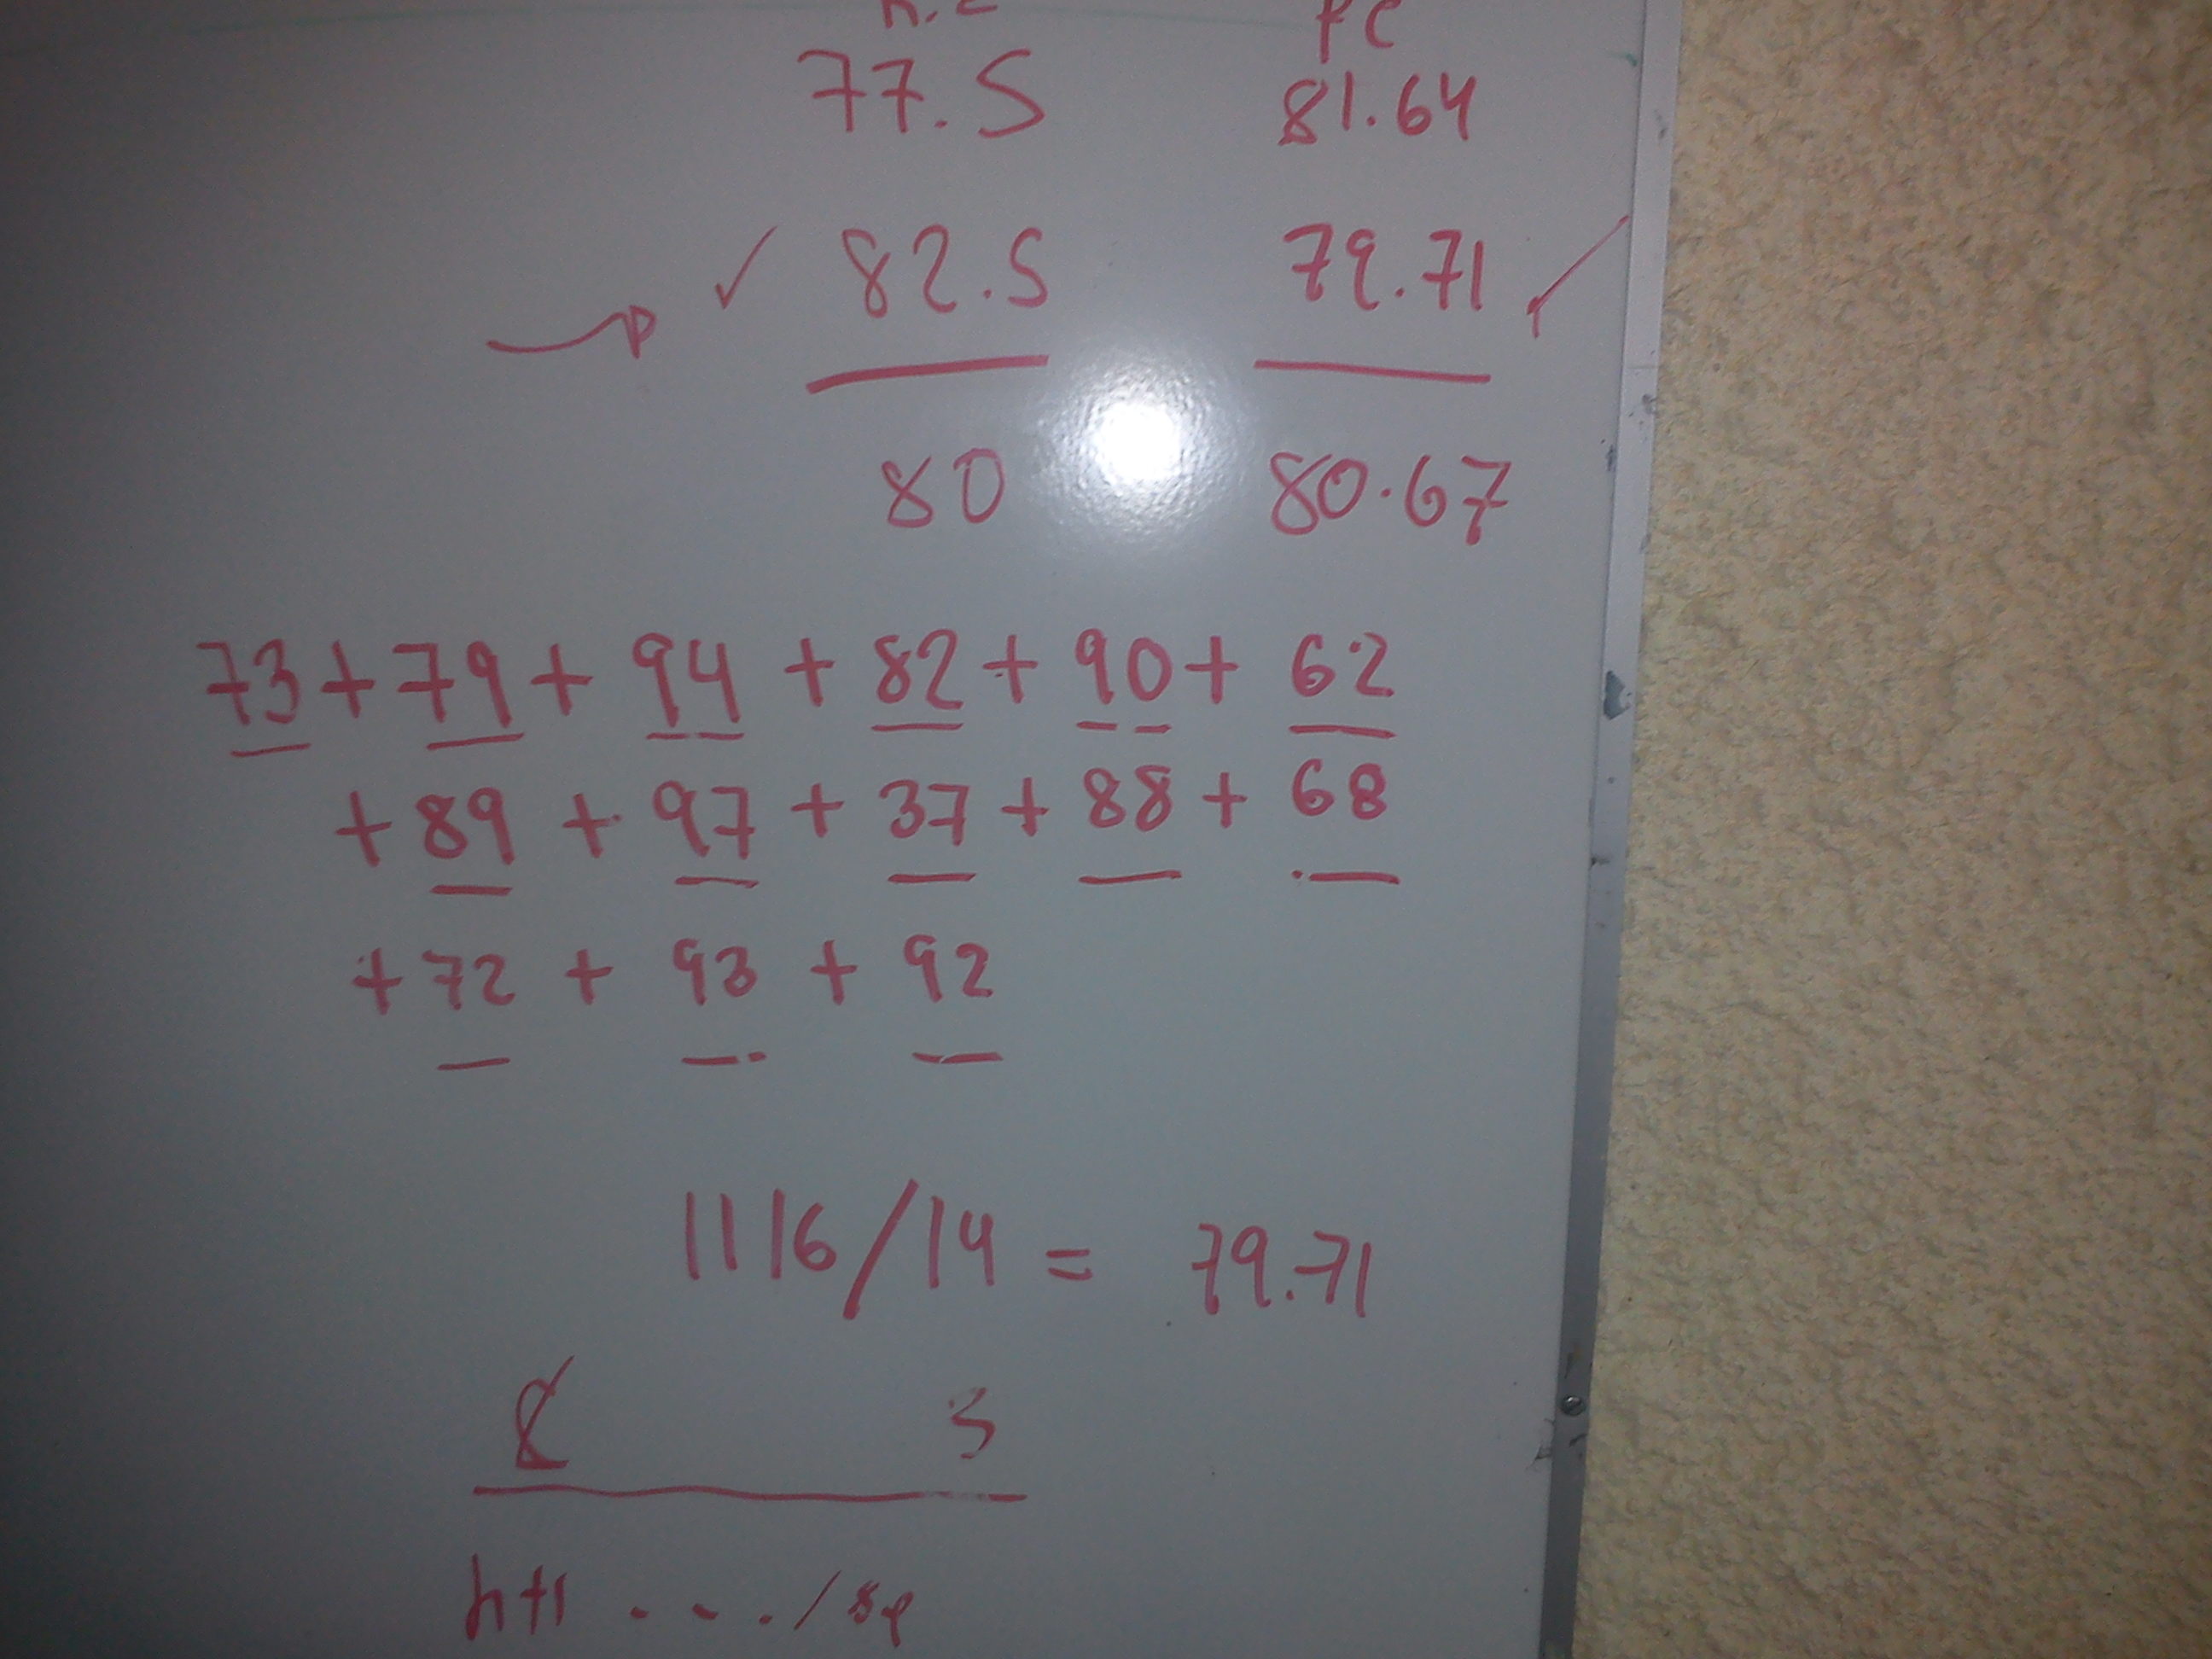 PC
77.5 81.64
✓ 82.5 79.71 ✓
80 80.67
73 + 79 + 94 + 82 + 90 + 62
+ 89 + 97 + 37 + 88 + 68
+ 72 + 93 + 92
1116/14 = 79.71